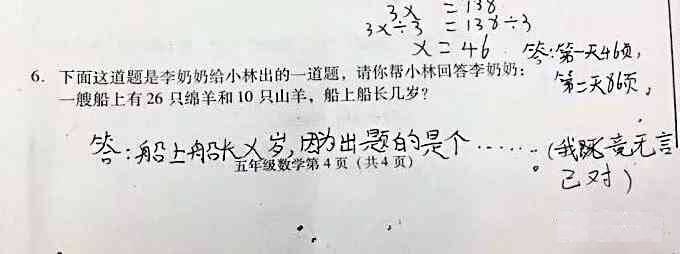 3x = 138
3x÷3 = 138÷3
x = 46
答:第一天46页,
第二天86页。
6. 下面这道题是李奶奶给小林出的一道题，请你帮小林回答李奶奶：
一艘船上有26只绵羊和10只山羊，船上船长几岁？
答:船上船长X岁,因为出题的是个……。(我既竟无言
己对)
五年级数学第4页（共4页）